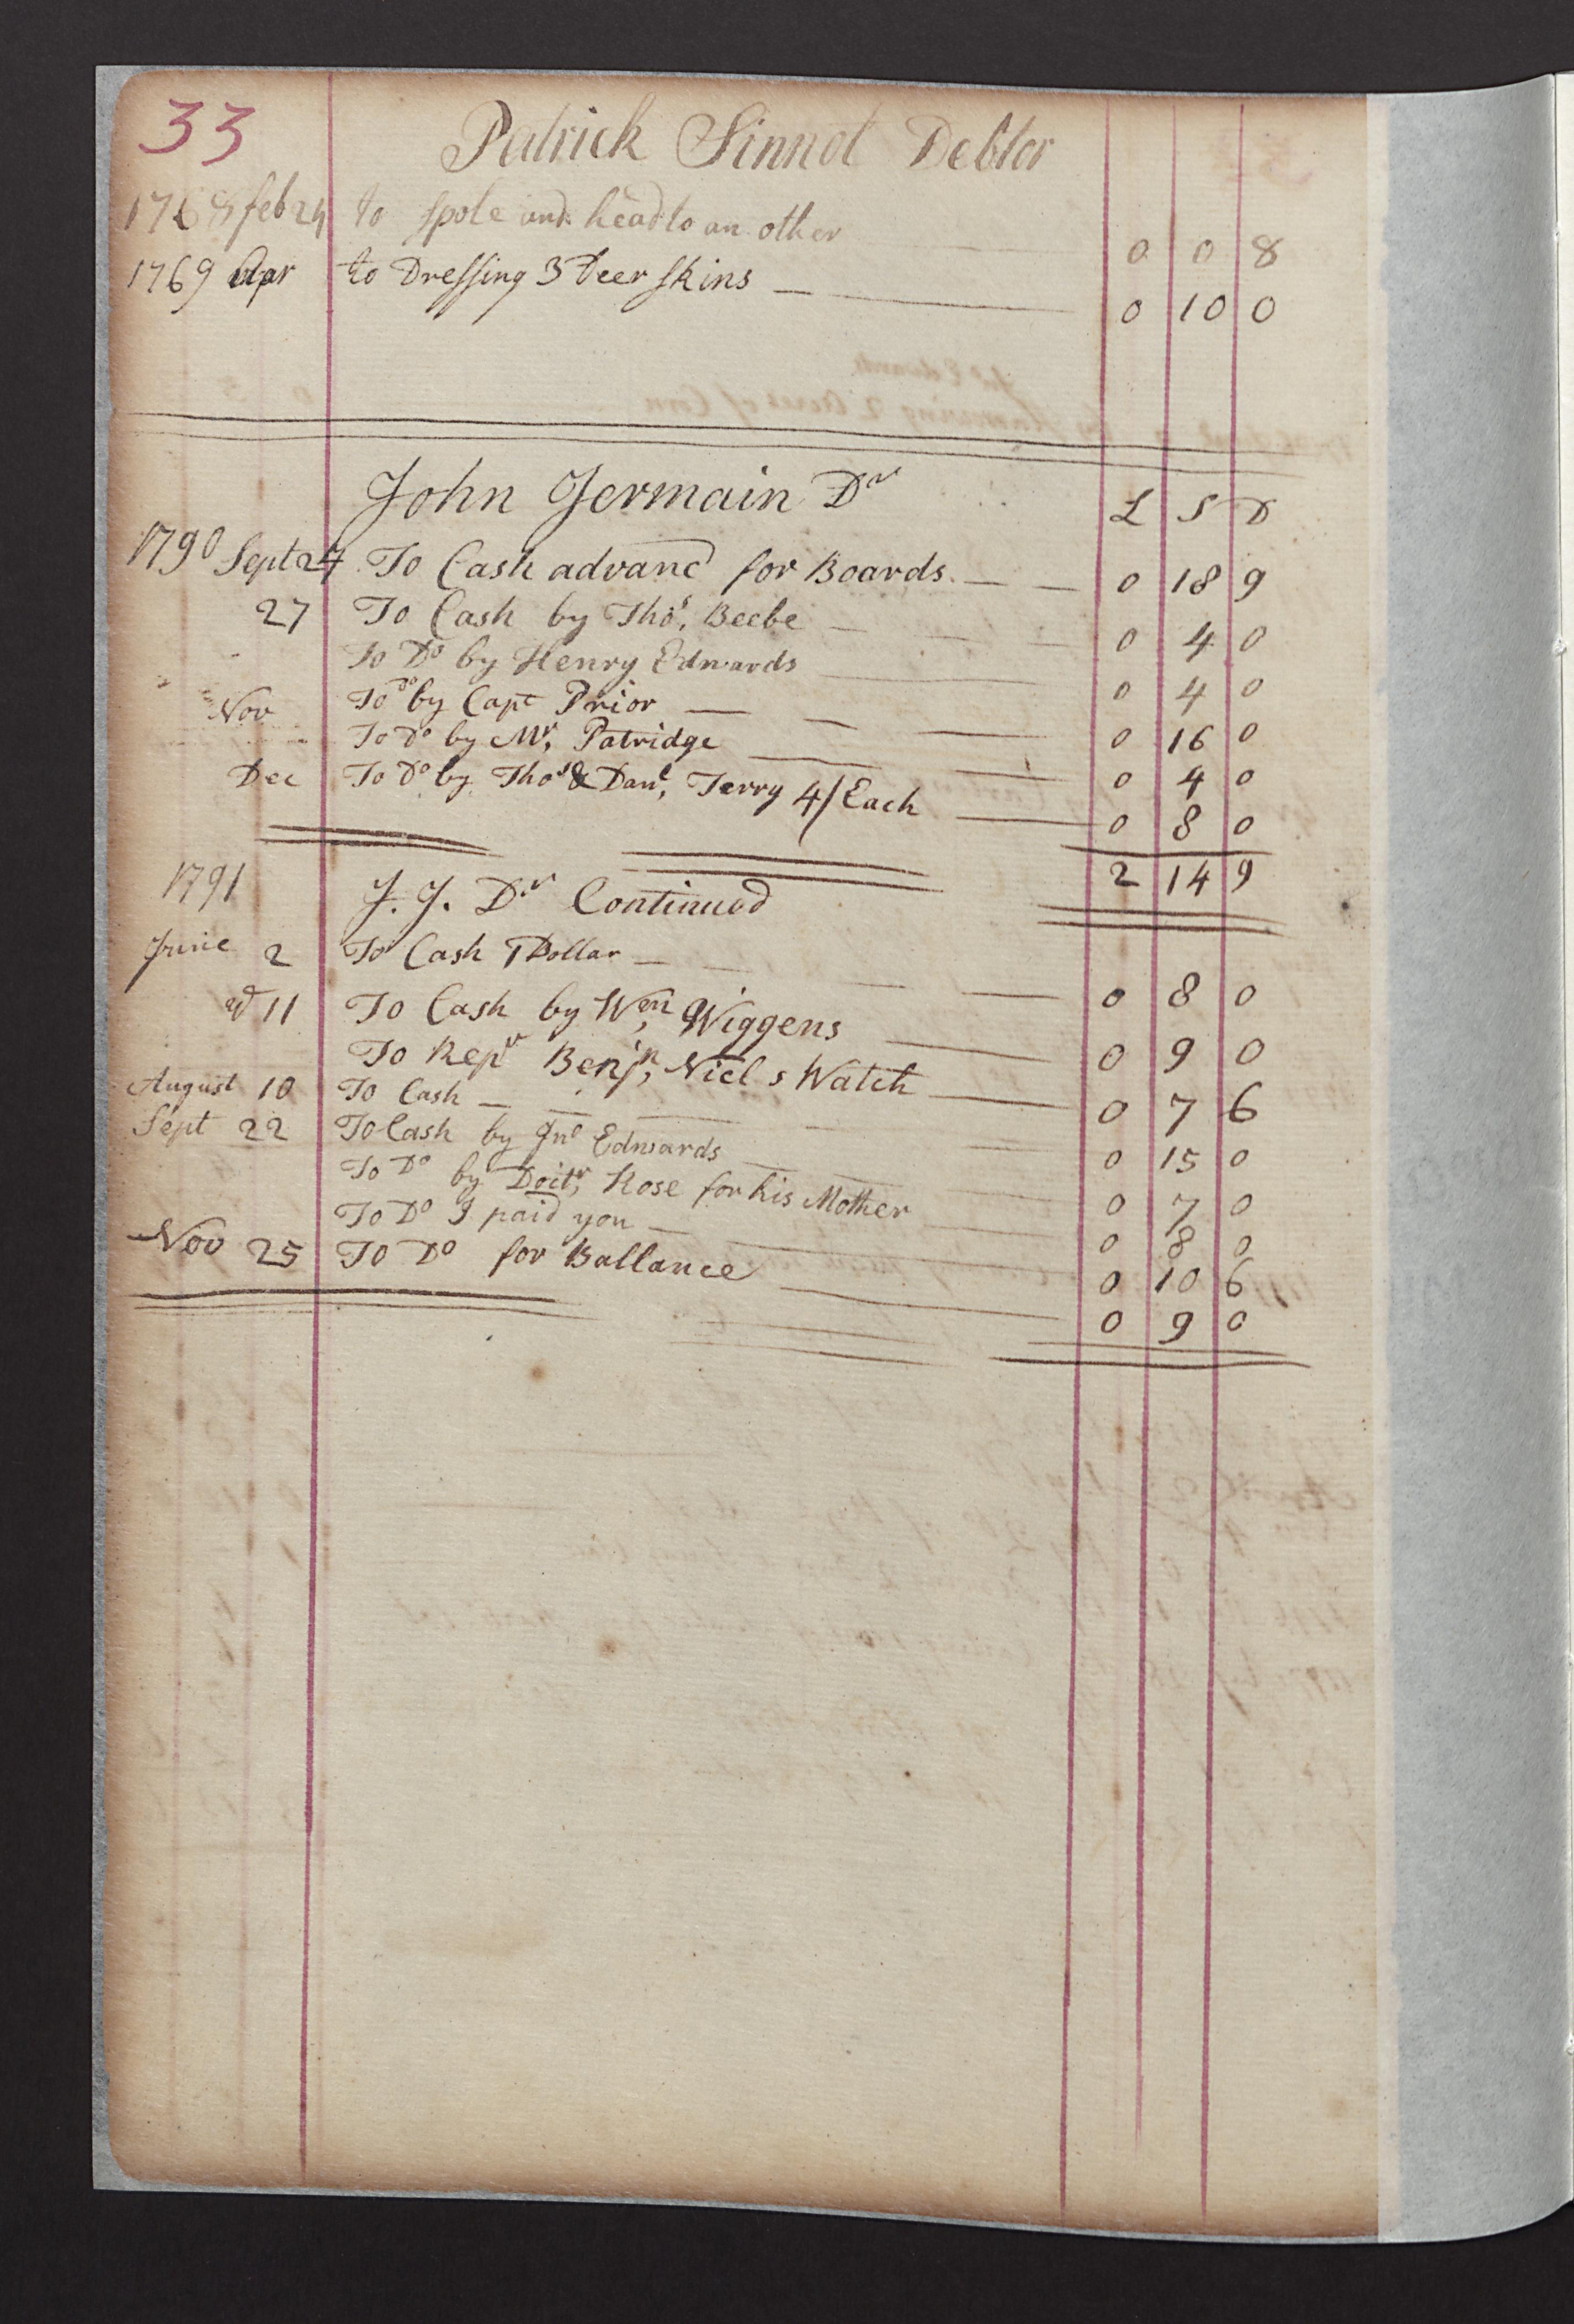 33 Patrick Sinnot Debtor
1768 feb 24 to spole and head to an other 0 0 8
1769 Apr to Dressing 3 Deer skins 0 10 0
John Jermain Dr L S D
1790 Sept 27 To Cash advanc'd for Boards 0 18 9
27 To Cash by Thos. Beebe 0 4 0
To Do by Henry Edwards 0 4 0
Nov To Do by Capt Prior 0 16 0
To Do by Mr. Patridge 0 4 0
Dec To Do by Thos & Danl. Terry 4/ Each 0 8 0
2 14 9
1791 J. J. Dr Continued
June 2 To Cash 1 Dollar 0 8 0
11 To Cash by Wm. Wiggens 0 9 0
To Repr Benjn. Niels Watch 0 7 6
August 10 To Cash 0 15 0
Sept 22 To Cash by Jno Edwards 0 7 0
To Do by Doctr. Rose for his Mother 0 8 0
To Do I paid you 0 10 6
Nov 25 To Do for Ballance 0 9 0